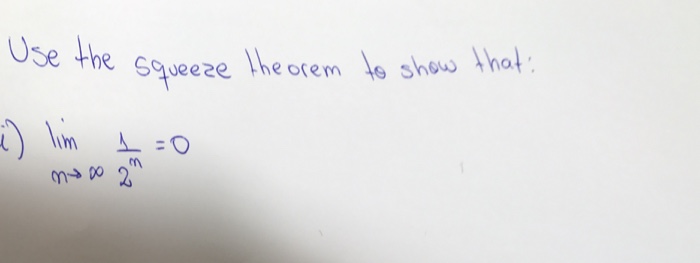 Use the squeeze theorem to show that:
i) lim 1/2^n = 0
n→∞